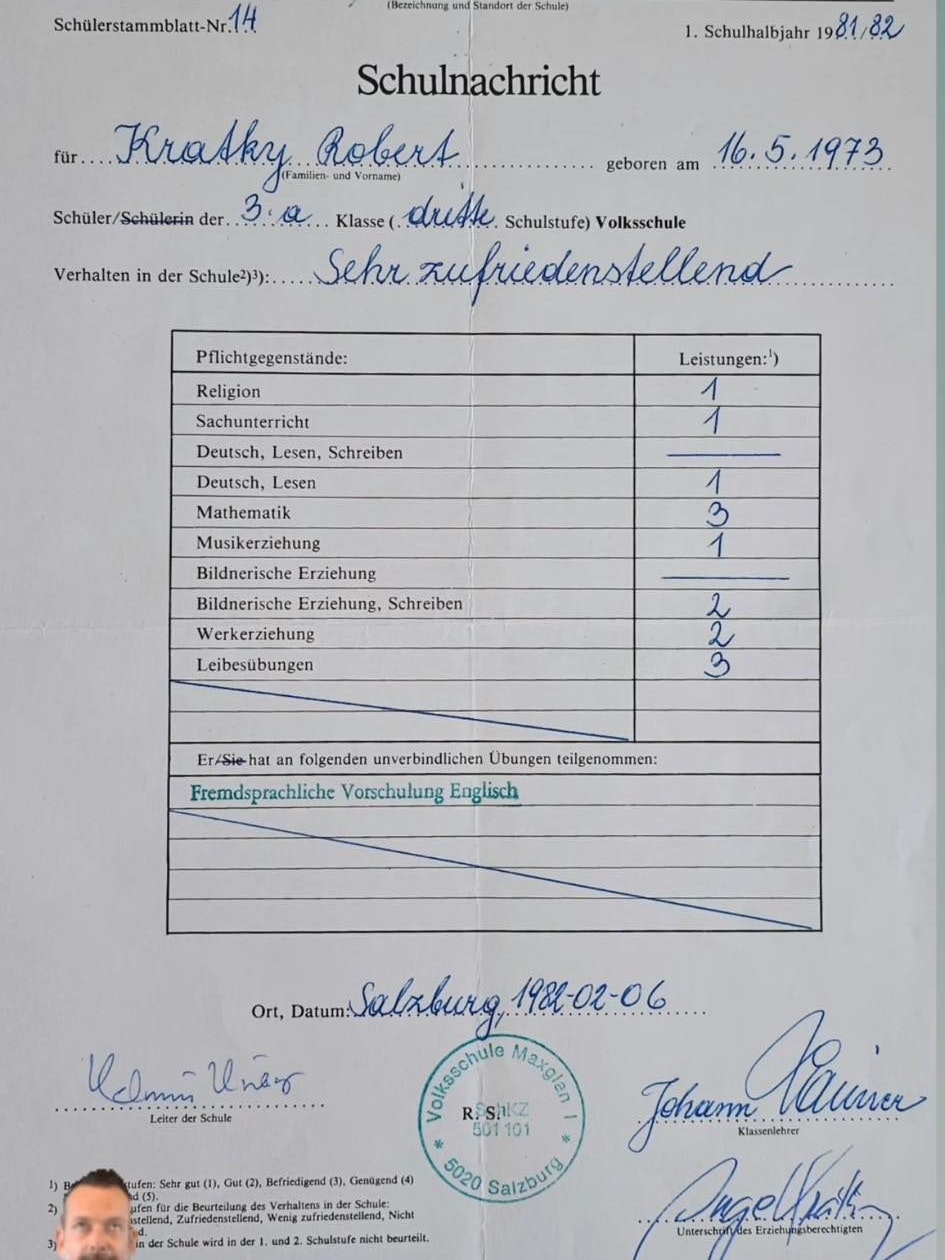 (Bezeichnung und Standort der Schule)
Schülerstammblatt-Nr. 14
1. Schulhalbjahr 1981/82
Schulnachricht
für Kratky Robert geboren am 16.5.1973
(Familien- und Vorname)
Schüler/Schülerin der 3.a Klasse (dritte Schulstufe) Volksschule
Verhalten in der Schule²)³): Sehr zufriedenstellend
Pflichtgegenstände: Leistungen:¹)
Religion 1
Sachunterricht 1
Deutsch, Lesen, Schreiben
Deutsch, Lesen 1
Mathematik 3
Musikerziehung 1
Bildnerische Erziehung
Bildnerische Erziehung, Schreiben 2
Werkerziehung 2
Leibesübungen 3
Er/Sie hat an folgenden unverbindlichen Übungen teilgenommen:
Fremdsprachliche Vorschulung Englisch
Ort, Datum: Salzburg, 1982-02-06
Leiter der Schule
Volksschule Maxglan I
R. S.
501 101
* 5020 Salzburg *
Johann
Klassenlehrer
Unterschrift des Erziehungsberechtigten
1) tufen: Sehr gut (1), Gut (2), Befriedigend (3), Genügend (4)
d (5).
2) ufen für die Beurteilung des Verhaltens in der Schule:
nstellend, Zufriedenstellend, Wenig zufriedenstellend, Nicht
d.
3) in der Schule wird in der 1. und 2. Schulstufe nicht beurteilt.